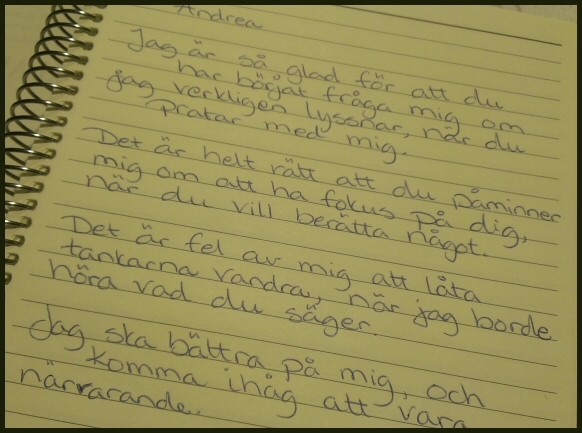 Andrea
Jag är så glad för att du
har börjat fråga mig om
jag verkligen lyssnar, när du
pratar med mig.
Det är helt rätt att du påminner
mig om att ha fokus på dig,
när du vill berätta något.
Det är fel av mig att låta
tankarna vandra, när jag borde
höra vad du säger.
Jag ska bättra på mig, och
komma ihåg att vara
närvarande.